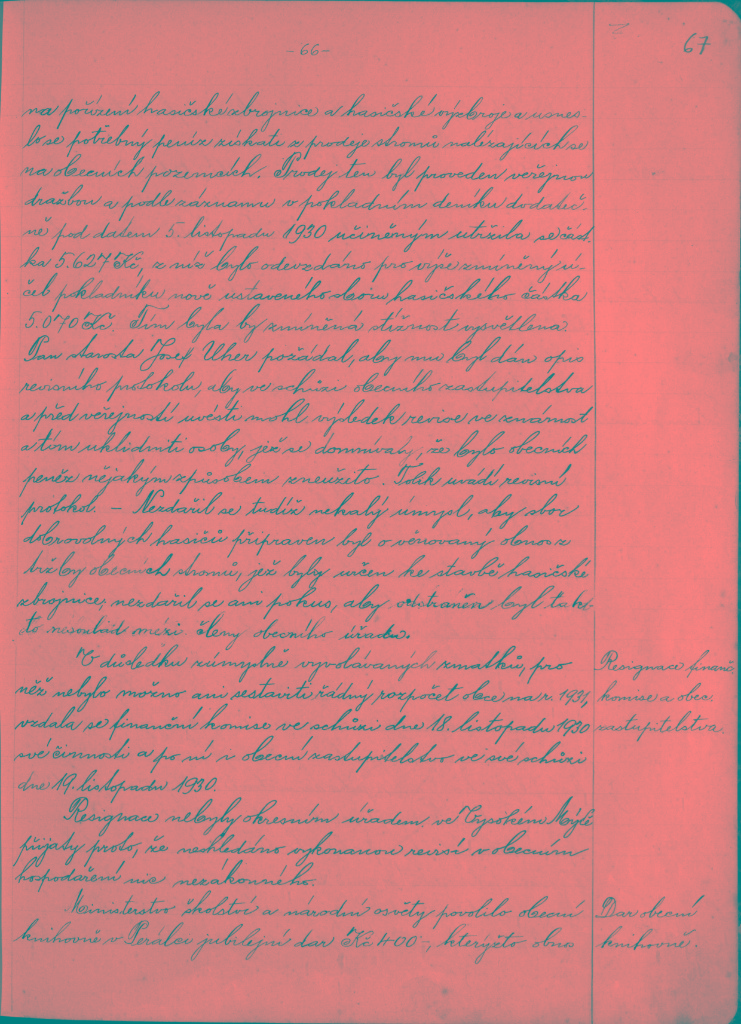 -66-
67
na pořízení hasičské zbrojnice a hasičské výzbroje a usnes-
lo se potřebný peníz získati z prodeje stromů nalézajících se
na obecních pozemcích. Prodej ten byl proveden veřejnou
dražbou a podle záznamu v pokladním deníku dodateč-
ně pod datem 5. listopadu 1930 učiněným utržila se část-
ka 5.627 Kč, z níž bylo odevzdáno pro výše zmíněný ú-
čel pokladníku nově ustaveného sboru hasičského částka
5.070 Kč. Tím byla by zmíněná stížnost vysvětlena.
Pan starosta Josef Uher požádal, aby mu byl dán opis
revisního protokolu, aby ve schůzi obecního zastupitelstva
a před veřejností uvésti mohl výsledek revise ve známost
a tím uklidniti osoby, jež se domnívaly, že bylo obecních
peněz nějakým způsobem zneužito. Tolik uvádí revisní
protokol. - Nezdařil se tudíž nekalý úmysl, aby sbor
dobrovolných hasičů připraven byl o věnovaný obnos z
tržby obecních stromů, jež byly určen ke stavbě hasičské
zbrojnice; nezdařil se ani pokus, aby odstraněn byl takto
nesoulad mezi členy obecního úřadu.
V důsledku zúmyslně vyvolávaných zmatků, pro
něž nebylo možno ani sestaviti řádný rozpočet obce na r. 1931,
vzdala se finanční komise ve schůzi dne 18. listopadu 1930
své činnosti a po ní i obecní zastupitelstvo ve své schůzi
dne 19. listopadu 1930.
Resignace finanč.
komise a obec.
zastupitelstva.
Resignace nebyly okresním úřadem ve Vysokém Mýtě
přijaty proto, že neshledáno vykonanou revisí v obecním
hospodaření nic nezákonného.
Ministerstvo školství a národní osvěty povolilo obecní
knihovně v Perálci jubilejní dar Kč 400-, kterýžto obno
Dar obecní
knihovně.